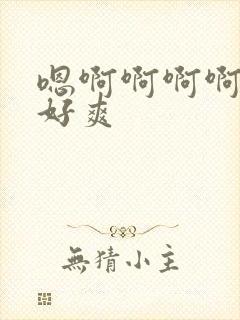 嗯啊啊啊啊
好爽
無猜小主